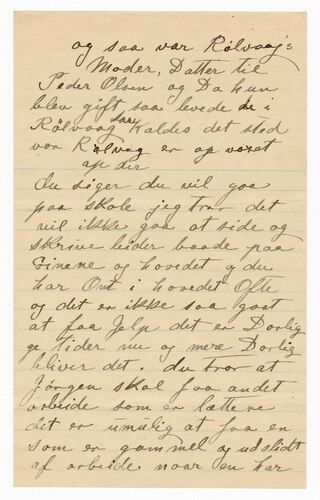 og saa var Rølvaags
Moder, Datter til
Peder Olsen og Da hun
blev gift saa levede de i
Rølvaag saa Kaldes det sted
vor Rølvag er op voxet
op der
Du siger du vil gaa
paa skole jeg tror det
vil ikke gaa at side og
skrive lider baade paa
Øinene og hovedet og du
har Ont i hovedet Ofte
og det er ikke saa godt
at faa Jelp det er Dorlig
ge tider nu og mere Dorlig
bliver det. du tror at
Jørgen skal faa andet
arbeide som er lettere
det er umulig at faa en
som er gammel og udslidt
af arbeide naar en har